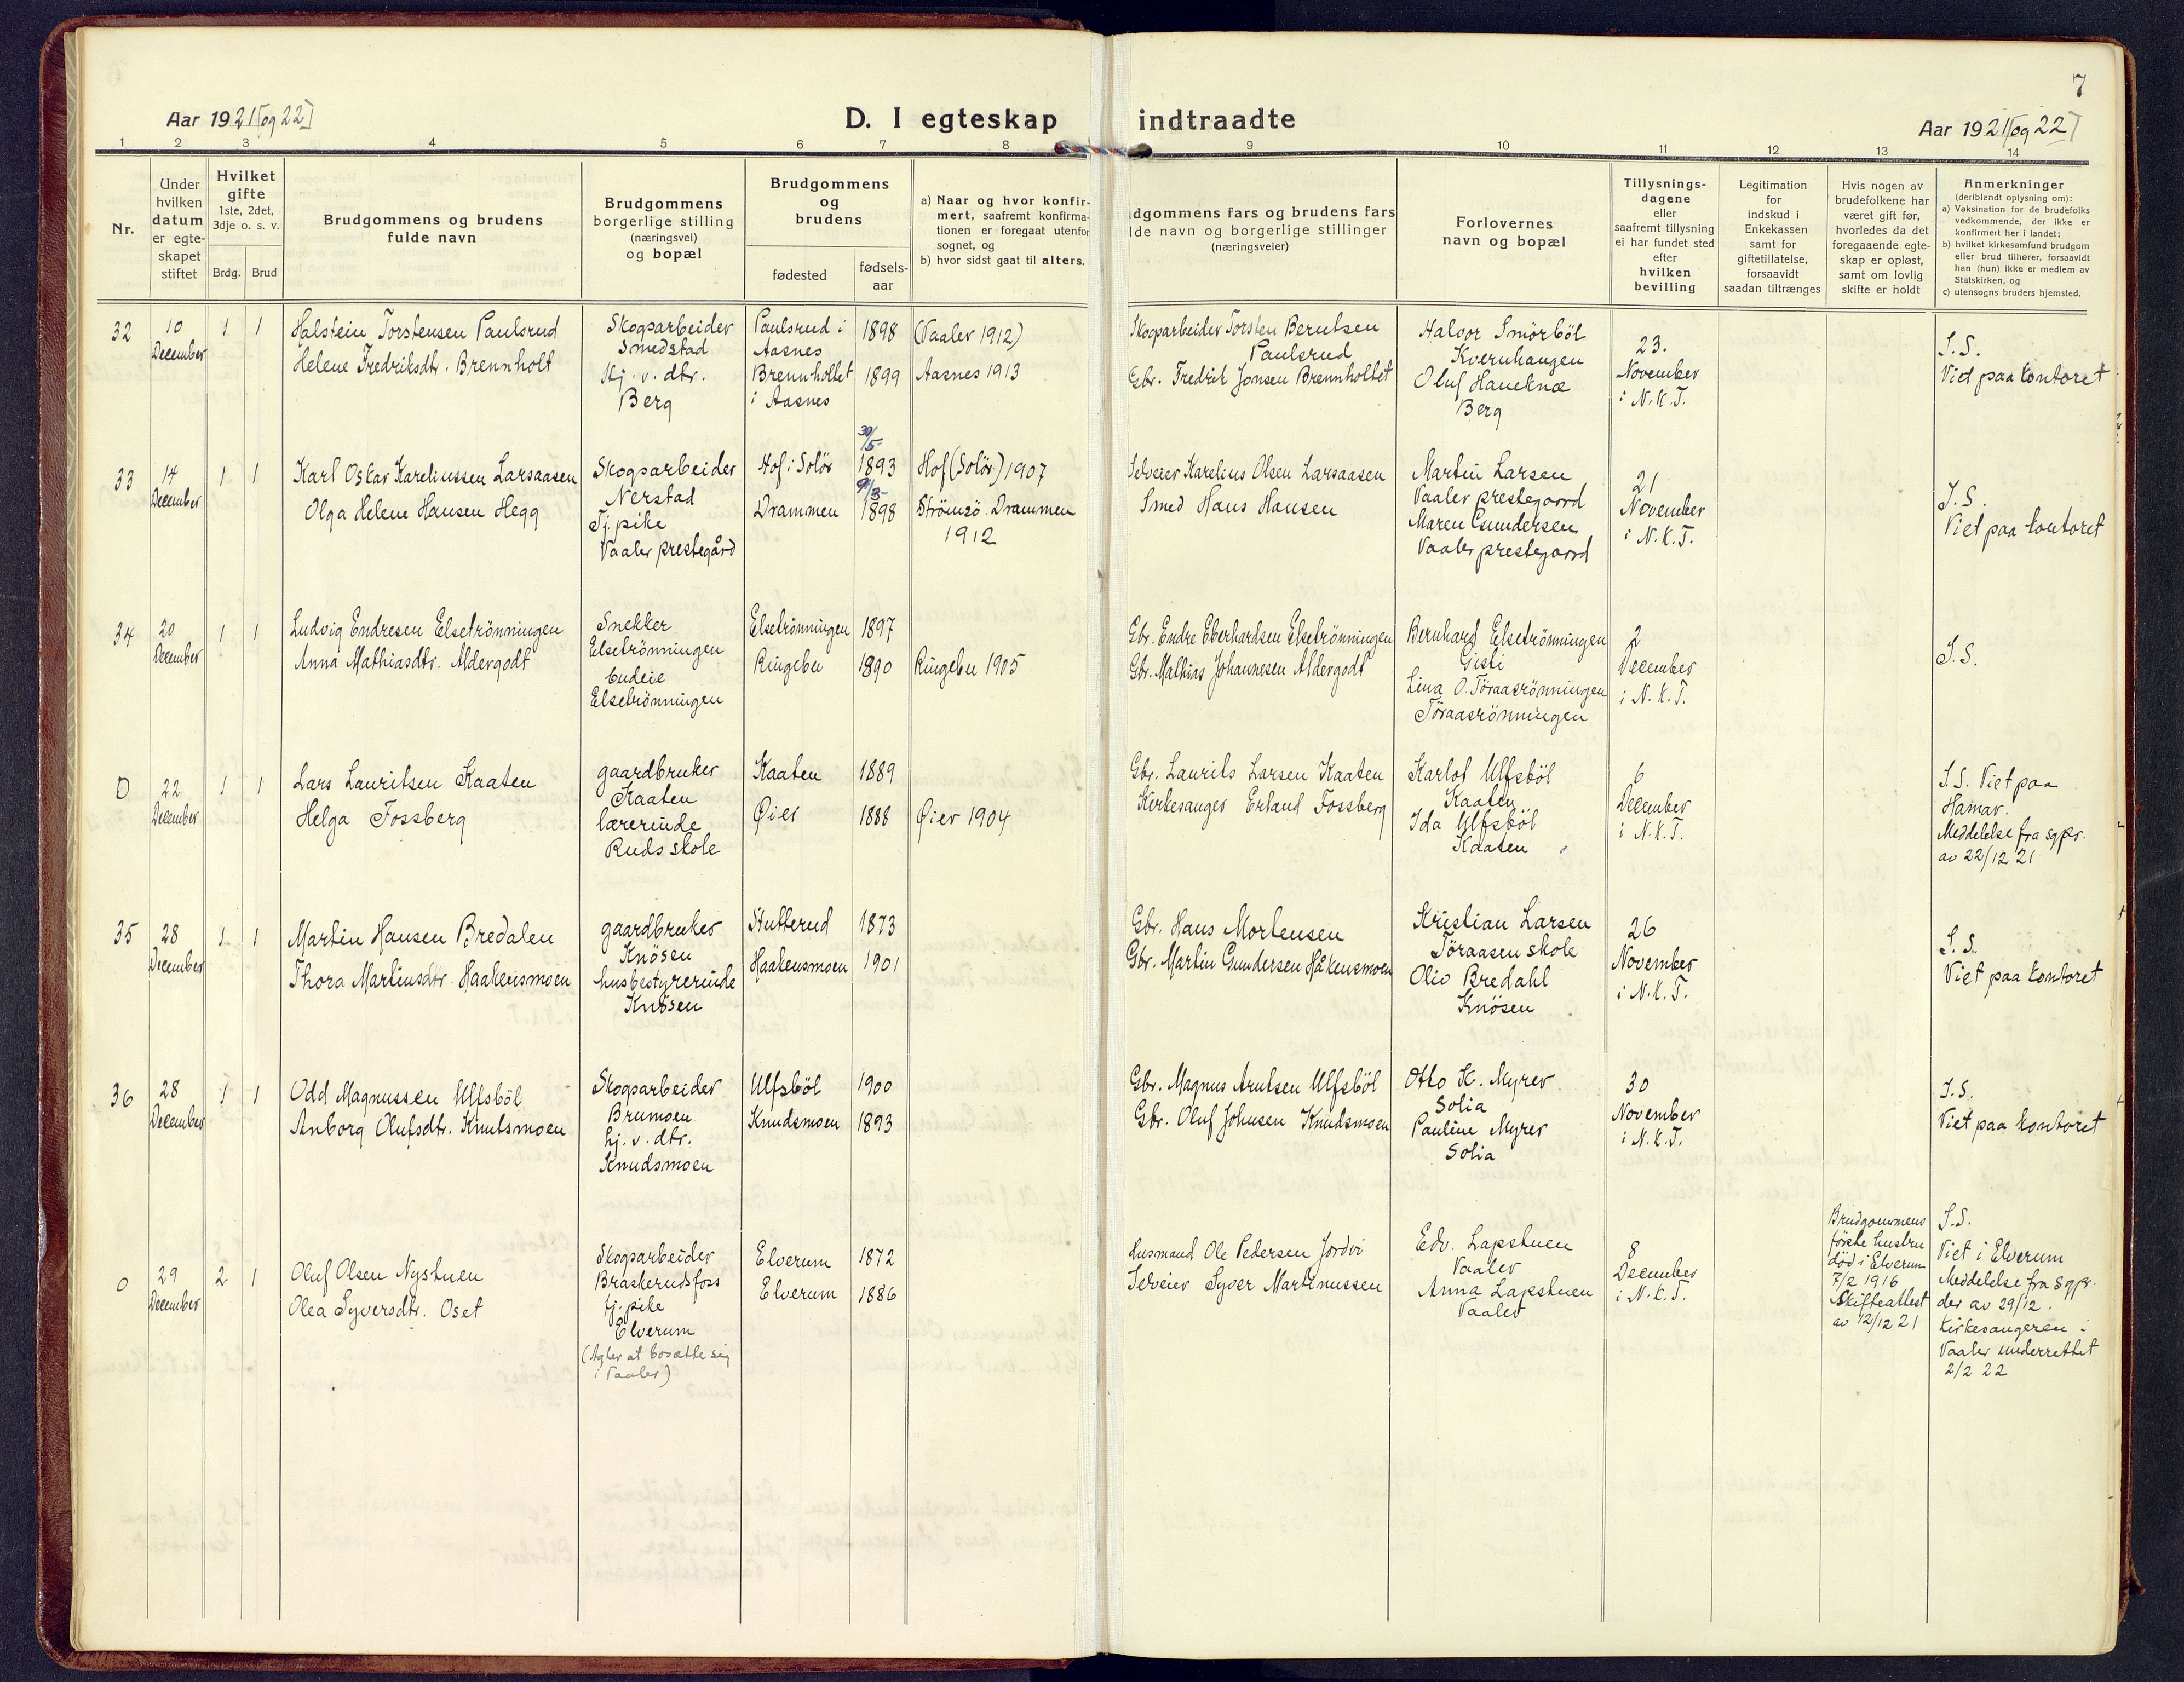 7
Aar 1921 [og 22]
D. I egteskap indtraadte
Aar 1921 [og 22]
1 2 3 4 5 6 7 8 9 10 11 12 13 14
Nr.
Under
hvilken
datum
er egte-
skapet
stiftet
Hvilket
gifte
1ste, 2det,
3dje o. s. v.
Brdg. Brud
Brudgommens og brudens
fulde navn
Brudgommens
borgerlige stilling
(næringsvei)
og bopæl
Brudgommens
og
brudens
fødested
fødsels-
aar
a) Naar og hvor konfir-
mert, saafremt konfirma-
tionen er foregaat utenfor
sognet, og
b) hvor sidst gaat til alters.
dgommens fars og brudens fars
lde navn og borgerlige stillinger
(næringsveier)
Forlovernes
navn og bopæl
Tillysnings-
dagene
eller
saafremt tillysning
ei har fundet sted
efter
hvilken
bevilling
Legitimation
for
indskud i
Enkekassen
samt for
giftetillatelse,
forsaavidt
saadan tiltrænges
Hvis nogen av
brudefolkene har
været gift før,
hvorledes da det
foregaaende egte-
skap er opløst,
samt om lovlig
skifte er holdt
Anmerkninger
(deriblandt oplysning om):
a) Vaksination for de brudefolks
vedkommende, der ikke er
konfirmert her i landet;
b) hvilket kirkesamfund brudgom
eller brud tilhører, forsaavidt
han (hun) ikke er medlem av
Statskirken, og
c) utensogns bruders hjemsted.
32
10
December
1 1
Halstein Torstensen Paulsrud
Helene Fredriksdtr. Brennholt
Skogsarbeider
Smedstad
Hj. v. dtr.
Berg
Paulsrud i
Aasnes
Brennholtet
i Aasnes
1898
1899
(Vaaler 1912)
Aasnes 1913
Skogsarbeider Torsten Berntsen
Paulsrud
Gbr. Fredrik Jonsen Brennholtet
Halvor Smörböl
Kvernhaugen
Oluf Haneknæ
Berg
23.
November
i N.K.T.
S.S.
Viet paa kontoret
33
14
December
1 1
Karl Oskar Kareliussen Larsaasen
Olga Helene Hansen Hegg
Skogsarbeider
Nerstad
Tj. pike
Vaaler prestegård
Hof i Solör
Drammen
30/5
1893
9/3
1898
Hof (Solör) 1907
Strömsö. Drammen
1912
Selveier Karelius Olsen Larsaasen
Smed Hans Hansen
Martin Larsen
Vaaler prestegaard
Maren Gundersen
Vaaler prestegaard
21
November
i N.K.T.
S.S.
Viet paa kontoret
34
20
December
1 1
Ludvig Endresen Elsetrönningen
Anna Mathiasdtr. Aldergodt
Snekker
Elsetrönningen
budeie
Elsetrönningen
Elsetrönningen
Ringebu
1897
1890
Ringebu 1905
Gbr. Endre Eberhardsen Elsetrönningen
Gbr. Mathias Johannesen Aldergodt
Bernhard Elsetrönningen
Gisti
Lina O. Töraasrönningen
Töraasrönningen
2
December
i N.K.T.
S.S.
0
22
December
1 1
Lars Lauritsen Kaaten
Helga Fossberg
gaardbruker
Kaaten
lærerinde
Ruds skole
Kaaten
Øier
1889
1888
Øier 1904
Gbr. Laurits Larsen Kaaten
Kirkesanger Erland Fossberg
Karlot Ulfsböl
Kaaten
Ida Ulfsböl
Kaaten
6
December
i N.K.T.
S.S. Viet paa
Hamar.
Meddelelse fra sgpr.
av 22/12 21
35
28
December
1 1
Martin Hansen Bredalen
Thora Martinsdtr. Haakensmoen
gaardbruker
Knösen
husbestyrerinde
Knösen
Stutterud
Haakensmoen
1873
1901
Gbr. Hans Mortensen
Gbr. Martin Gundersen Håkensmoen
Kristian Larsen
Töraasen skole
Oliv Bredahl
Knösen
26
November
i N.K.T.
S.S.
Viet paa kontoret
36
28
December
1 1
Odd Magnussen Ulfsböl
Anborg Olufsdtr. Knutsmoen
Skogsarbeider
Brumoen
hj. v. dtr.
Knudsmoen
Ulfsböl
Knudsmoen
1900
1893
Gbr. Magnus Arntsen Ulfsböl
Gbr. Oluf Johnsen Knudsmoen
Otto K. Myrer
Solia
Pauline Myrer
Solia
30
November
i N.K.T.
S.S.
Viet paa kontoret
0
29
December
2 1
Oluf Olsen Nystuen
Olea Syversdtr. Oset
Skogsarbeider
Braskerudsfoss
tj. pike
Elverum
(Agter at bosætte sig
i Vaaler)
Elverum
Elverum
1872
1886
Husmand Ole Pedersen Jordvi
Selveier Syver Martinussen
Edv. Lapstuen
Vaaler
Anna Lapstuen
Vaaler
8
December
i N.K.T.
Brudgommens
förste hustru
död i Elverum
7/2 1916
Skifteattest
av 12/12 21
S.S.
Viet i Elverum
Meddelelse fra sgpr.
der av 29/12.
Kirkesangeren i
Vaaler underrettet
2/2 22